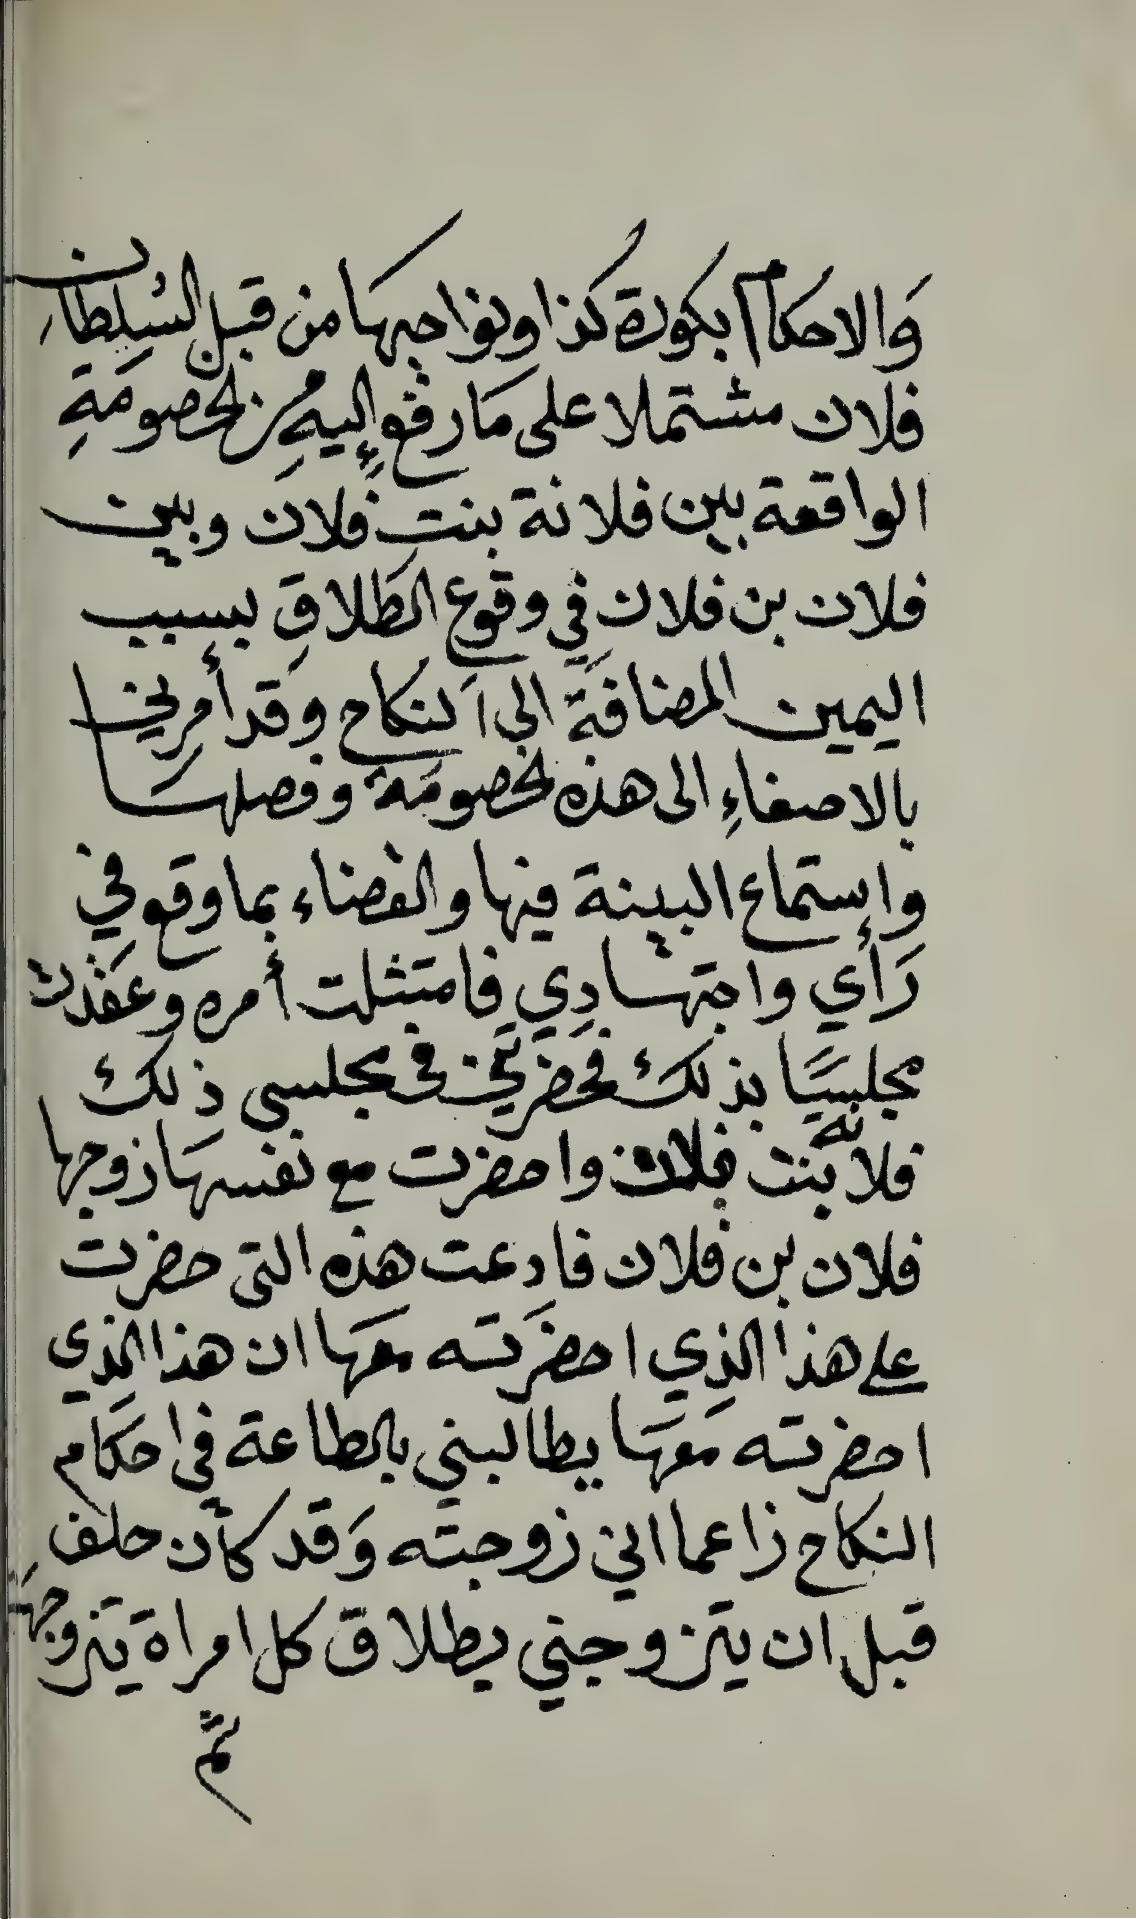 وَالاحكام بكورة كذا ونواحيها من قبل السُلطان
فلان مشتملا على مَا رفع إليهِ من الخصومَةِ
الواقعة بين فلانة بنتِ فلان وبين
فلان بن فلان في وقوع الطَلاقِ بسبب
اليمين المضافَة الى النكاح وقَد أمرني
بالاصغاءِ الى هذه الخصومَة وفصلها
وإستماع البينة فيها والقضاء بما وقع في
رَأي واجتهادِي فامتثلت أمره وعقدت
مجلسًا بذلك فحَضرتني في مجلسي ذلك
فلانة بنت فلان واحضرت مع نفسهَا زوجها
فلان بن فلان فادعت هذه التي حضرت
على هذا الذِي احضرَته معها ان هذا الذي
احضرته معَها يطالبني بالطاعة في احكام
النكاح زاعما اني زوجته وَقد كان حلف
قبل ان يتزوجني بطلاق كل امراة يتزوجهَا
ثم